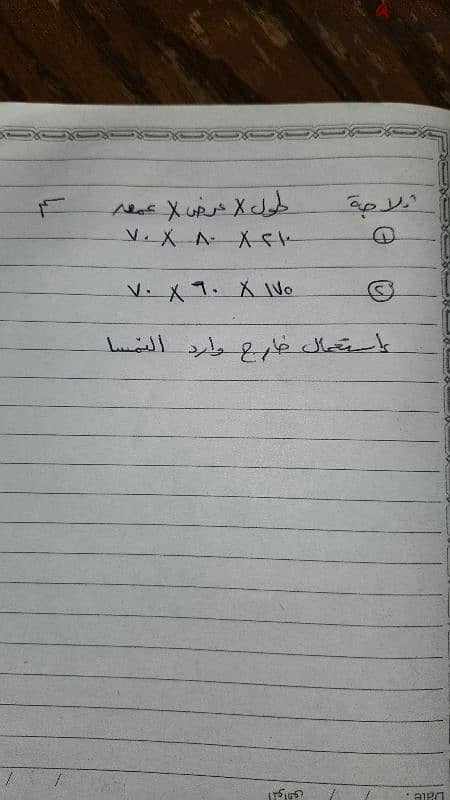 ثلاجة طول X عرض X عمق سم
① ٢١٠ X ٨٠ X ٧٠
② ١٧٥ X ٦٠ X ٧٠
إستعمال خارج وارد النمسا